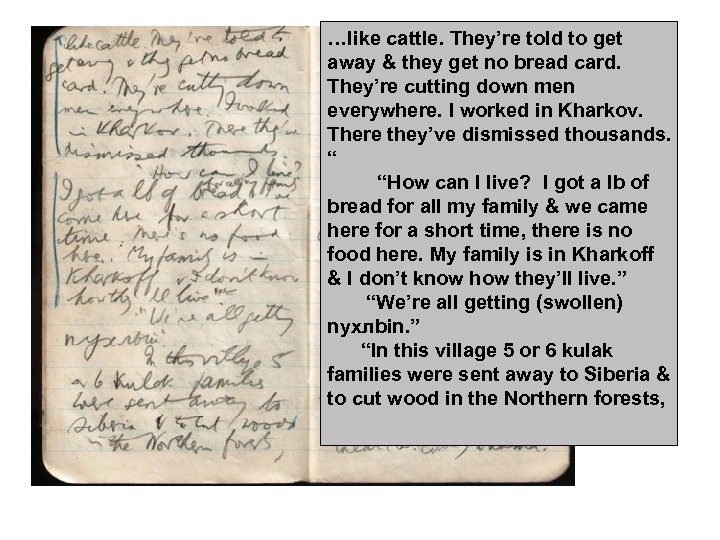 like cattle. They're told to
get away & they get no bread
card. They're cutting down
men everywhere. I worked
in Kharkov. There they've
dismissed thousands
"How can I live?
I got a lb of bread
for all my family & we
come here for a short
time, there's no food
here. My family is in
Kharkoff & I don't know
how they'll live."
"We're all getting
nyxлbin"
In this village 5
or 6 Kulak families
were sent away to
Siberia & to cut wood
in the Northern forests,
…like cattle. They’re told to get
away & they get no bread card.
They’re cutting down men
everywhere. I worked in Kharkov.
There they’ve dismissed thousands.
“
“How can I live? I got a lb of
bread for all my family & we came
here for a short time, there is no
food here. My family is in Kharkoff
& I don’t know how they’ll live. ”
“We’re all getting (swollen)
nyxлbin. ”
“In this village 5 or 6 kulak
families were sent away to Siberia &
to cut wood in the Northern forests,